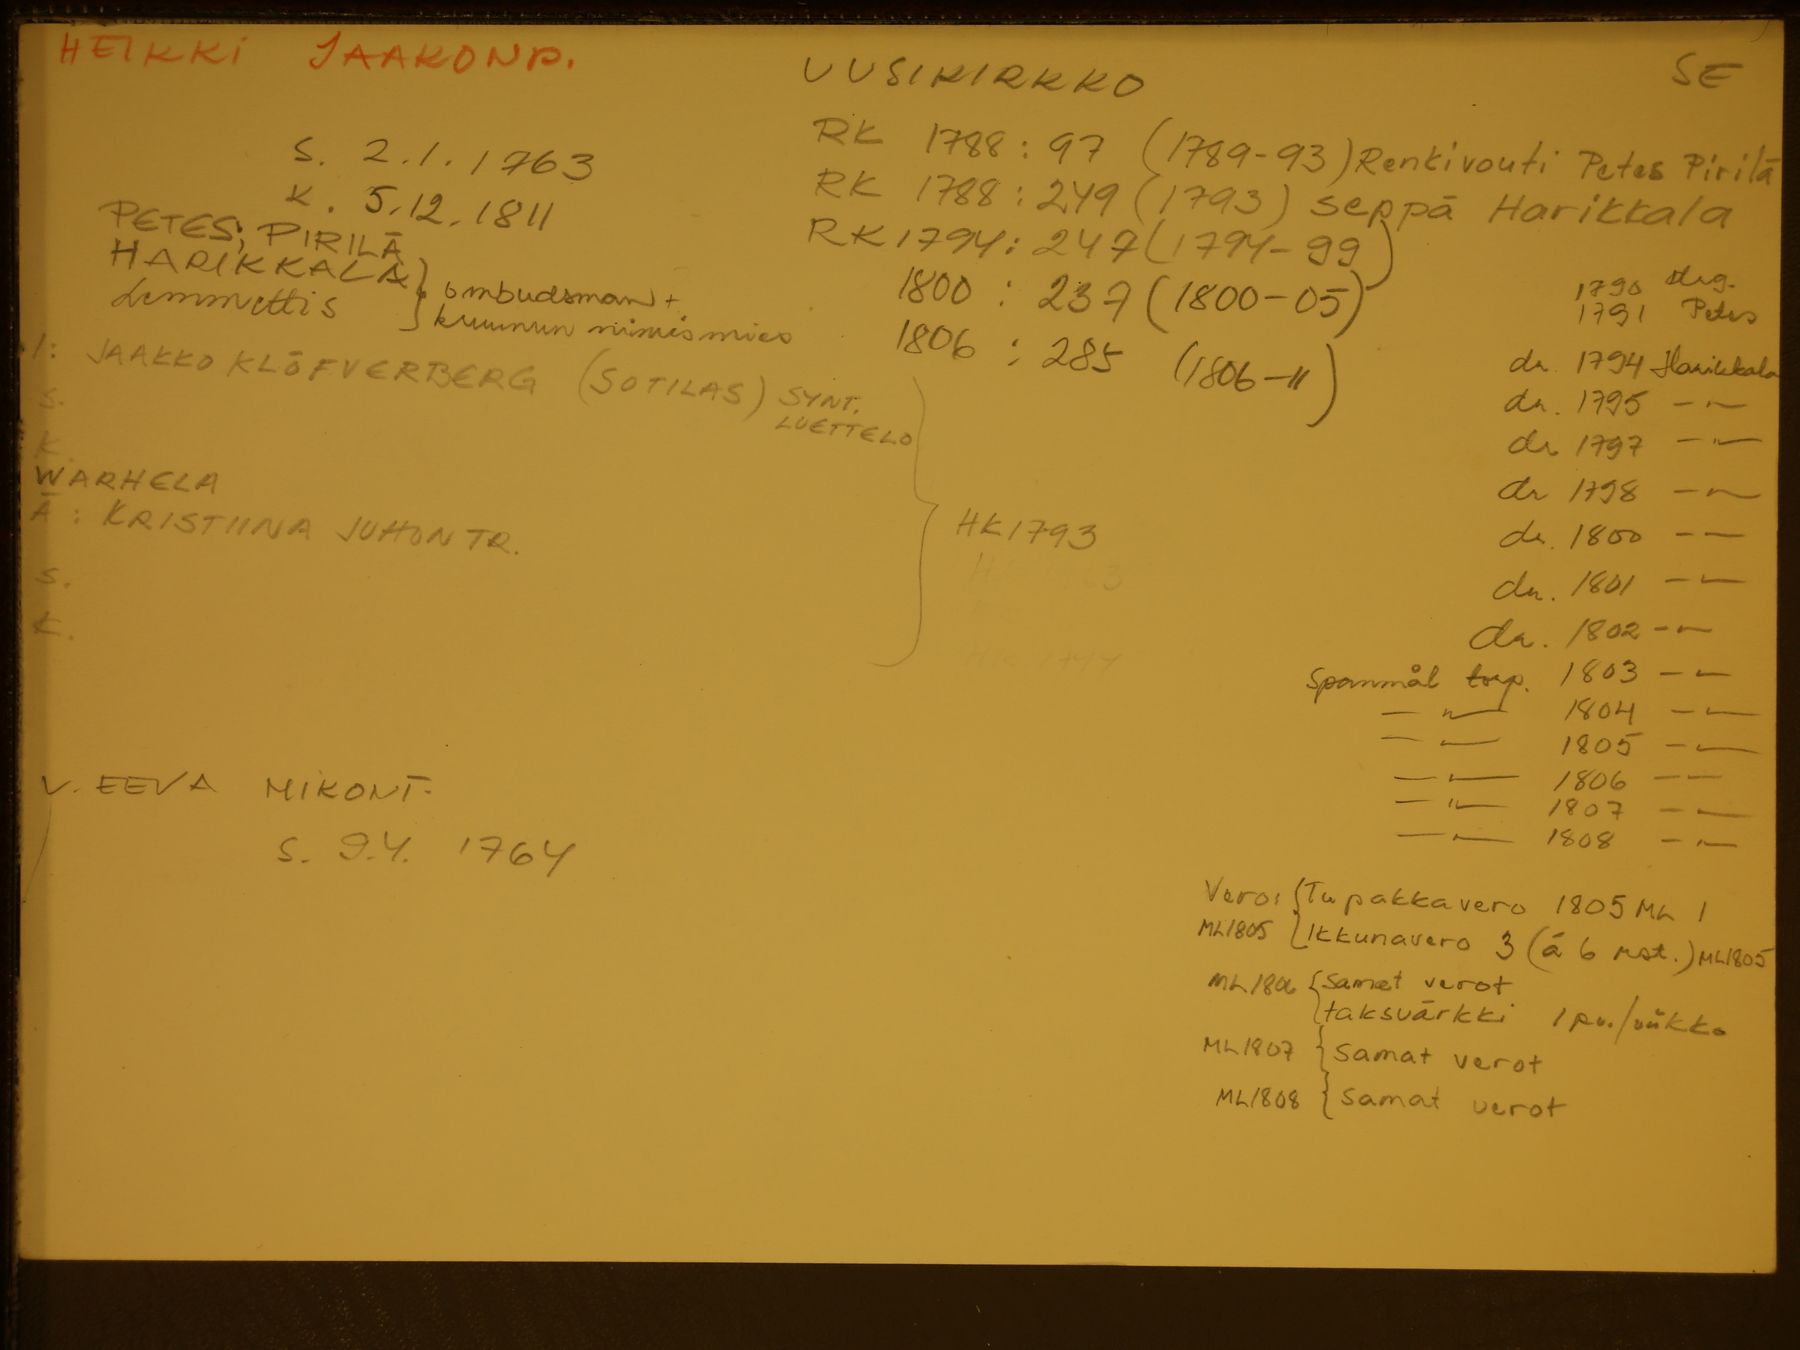 HEIKKI JAAKONP.
UUSIKIRKKO
SE
S. 2.1.1763
K. 5.12.1811
PETES; PIRILÄ
HARIKKALA
Lemmettis
} ombudsman +
kruunun nimismies
RK 1788: 97 (1789-93) Renkivouti Petes Pirilä
RK 1788: 249 (1793) seppä Harikkala
RK 1794: 247 (1794-99)
1800 : 237 (1800-05)
1806 : 285 (1806-11)
I: JAAKKO KLÖFVERBERG (SOTILAS) SYNT.
LUETTELO
S.
K.
WARHELA
Ä: KRISTIINA JUHONTR.
S.
K.
HK 1793
V. EEVA MIKONT.
S. 9.4. 1764
1790 drg.
1791 Petes
dr. 1794 Harikkala
dr. 1795 — " —
dr. 1797 — " —
dr 1798 — " —
dr. 1800 — —
dr. 1801 — " —
dr. 1802 — " —
Spannmål torp. 1803 — " —
— " — 1804 — " —
— " — 1805 — " —
— " — 1806 — —
— " — 1807 — " —
— " — 1808 — " —
Vero: { Tupakkavero 1805 ML 1
ML1805 Ikkunavero 3 (á 6 rst.) ML1805
ML1806 { samat verot
taksvärkki 1 pv./viikko
ML1807 { samat verot
ML1808 { samat verot